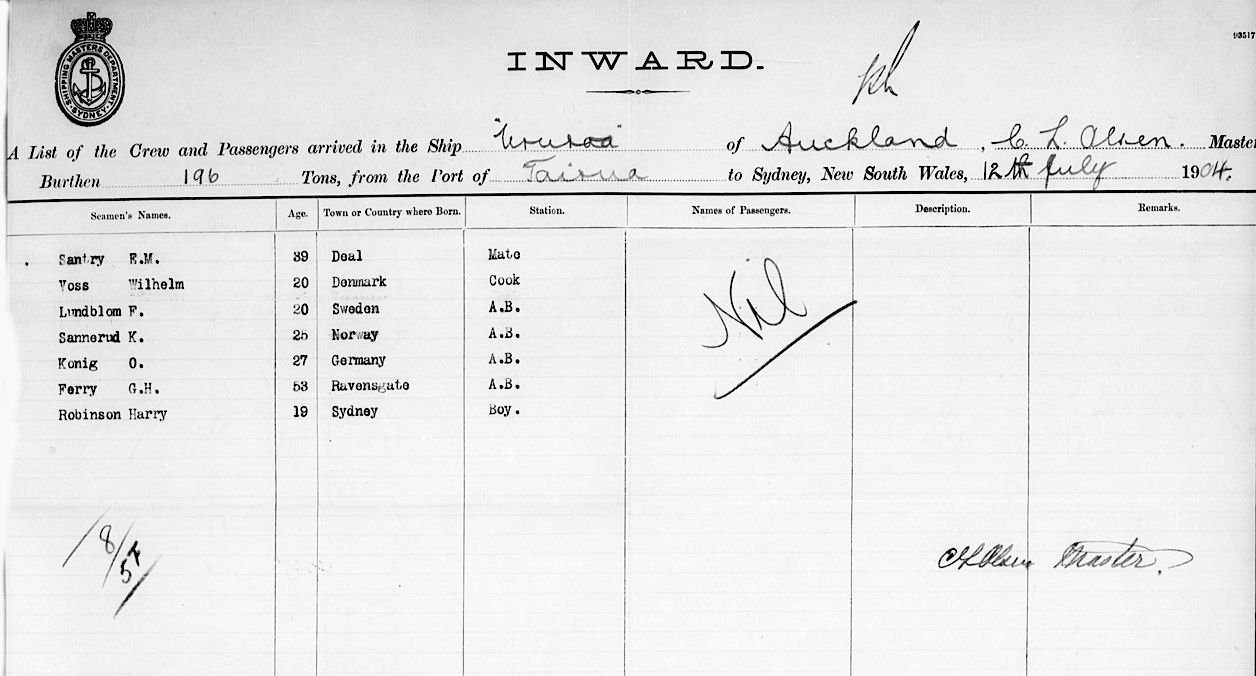 93517
SHIPPING MASTERS DEPARTMENT. SYDNEY.
INWARD.
A List of the Crew and Passengers arrived in the Ship of Auckland, C. L. Olsen. Master
Burthen 196 Tons, from the Port of Tairua to Sydney, New South Wales, 12th July 1904.
Seamen's Names. Age. Town or Country where Born. Station. Names of Passengers. Description. Remarks.
Santry E.M. 39 Deal Mate
Voss Wilhelm 20 Denmark Cook
Lundblom F. 20 Sweden A.B.
Sannerud K. 25 Norway A.B.
Konig O. 27 Germany A.B.
Ferry G.H. 53 Ravensgate A.B.
Robinson Harry 19 Sydney Boy.
Nil
8/57
C L Olsen Master.